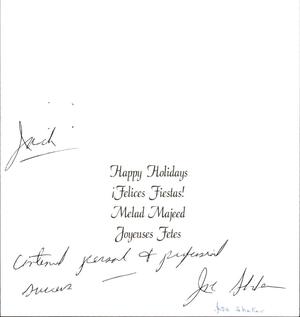 Jack
Happy Holidays
¡Felices Fiestas!
Melad Majeed
Joyeuses Fetes
Continued personal & professional
success
Joe